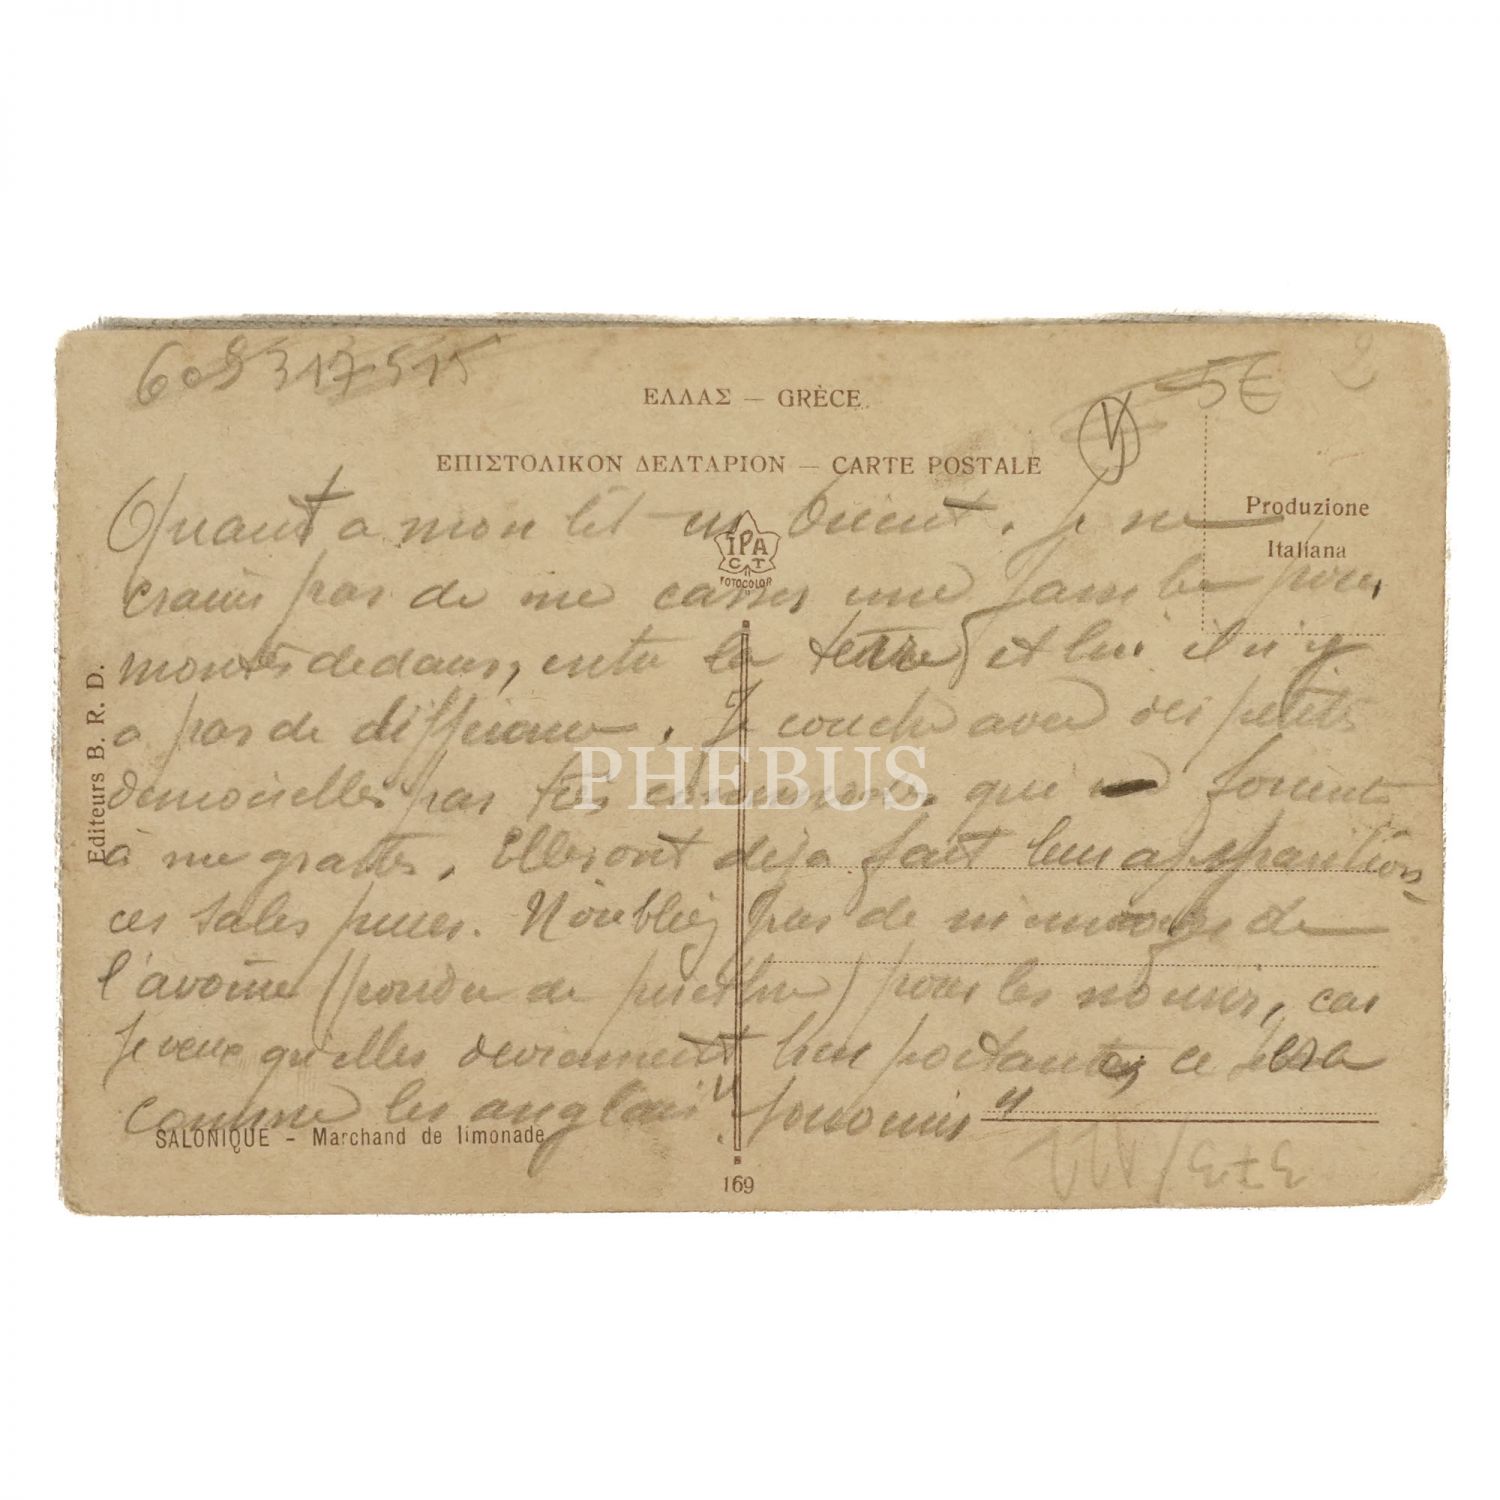 609 317 515
5€
2
ΕΛΛΑΣ — GRÈCE.
ΕΠΙΣΤΟΛΙΚΟΝ ΔΕΛΤΑΡΙΟΝ — CARTE POSTALE
Produzione
Italiana
IPA
CT
FOTOCOLOR
Editeurs B. R. D.
Quant a mon lit en Orient. Je ne
crains pas de me casser une jambe pour
monter dedans, entre la terre et lui il n'y
a pas de différence. Je couche avec des petites
demoiselles pas très qui
à me gratter. Elles ont déja fait leur apparition
ces sales puces. N'oubliez pas de m'envoyer de
l'avoine (poudre de pyrèthre) pour les nourrir, car
je veux qu'elles deviennent bien portantes, ce sera
comme les anglais
PHEBUS
SALONIQUE - Marchand de limonade
169